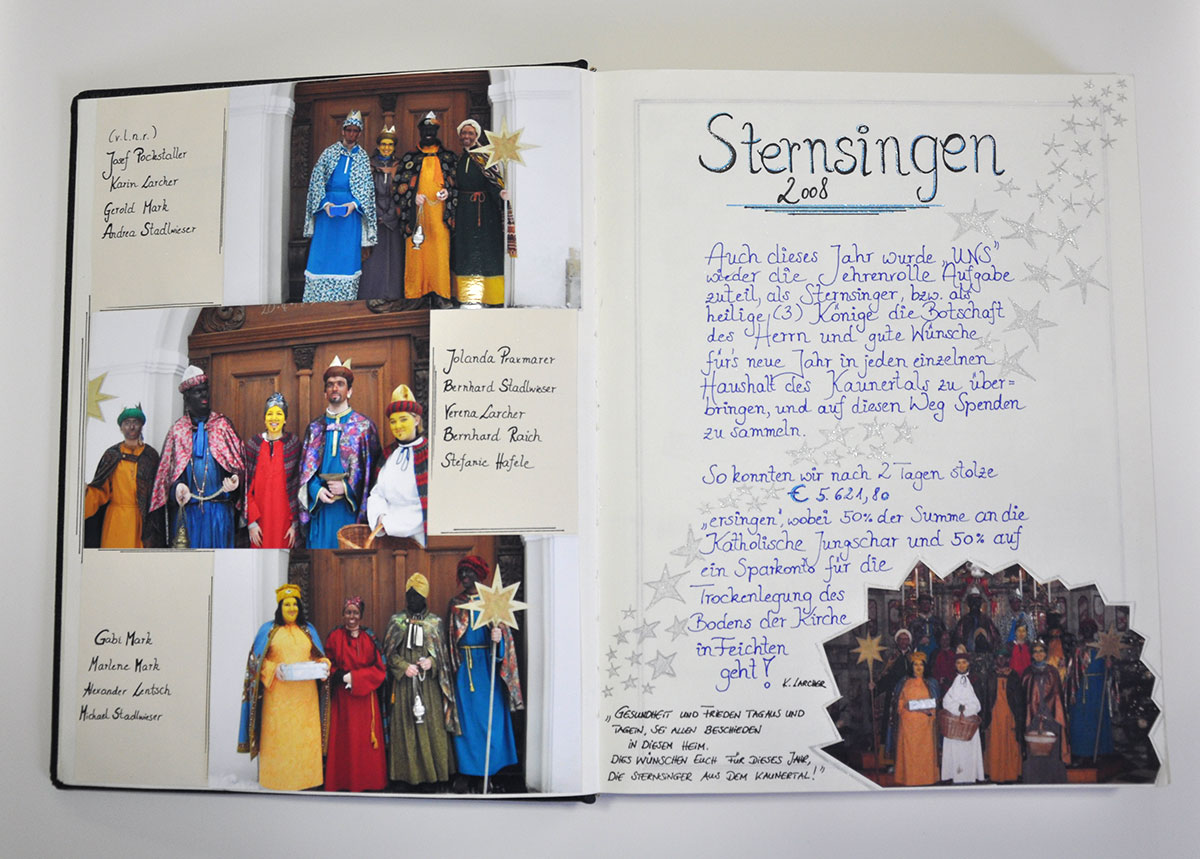 (v.l.n.r.)
Josef Pockstaller
Karin Larcher
Gerold Mark
Andrea Stadlwieser
Jolanda Praxmarer
Bernhard Stadlwieser
Verena Larcher
Bernhard Raich
Stefanie Hafele
Gabi Mark
Marlene Mark
Alexander Lentsch
Michael Stadlwieser
Sternsingen
2008
Auch dieses Jahr wurde „UNS"
wieder die ehrenvolle Aufgabe
zuteil, als Sternsinger, bzw. als
heilige (3) Könige die Botschaft
des Herrn und gute Wünsche
für's neue Jahr in jeden einzelnen
Haushalt des Kaunertals zu über=
bringen, und auf diesen Weg Spenden
zu sammeln.
So konnten wir nach 2 Tagen stolze
€ 5.621,80
„ersingen", wobei 50% der Summe an die
Katholische Jungschar und 50% auf
ein Sparkonto für die
Trockenlegung des
Bodens der Kirche
in Feichten
geht!
K. LARCHER
„GESUNDHEIT UND FRIEDEN TAGAUS UND
TAGEIN, SEI ALLEN BESCHIEDEN
IN DIESEM HEIM.
DIES WÜNSCHEN EUCH FÜR DIESES JAHR,
DIE STERNSINGER AUS DEM KAUNERTAL!"